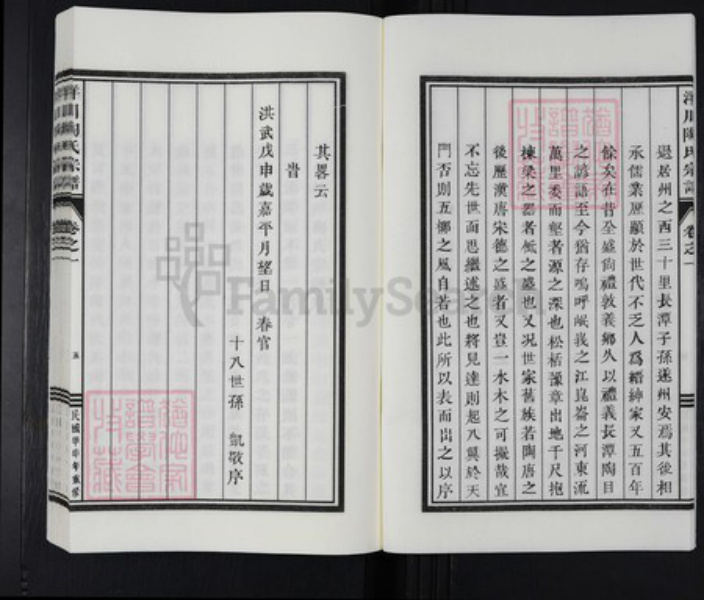 洋川陶氏宗譜
卷之一
遢居州之西三十里長潭子孫遂州安焉其後相
承儒業歷顯於世代不乏人爲縉紳家又五百年
餘矣在昔全盛尙禮敦義鄉久以禮義長潭陶目
之諺語至今猶存嗚呼岷峩之江崑崙之河東流
萬里委而壑者源之深也松栝豫章出地千尺抱
棟梁之器者柢之盛也又况世家舊族若陶唐之
後歷漢唐宋德之盛者又豈一水木之可擬哉宜
不忘先世而思繼述之也將見達則起八與於天
門否則五鄉之風自若也此所以表而出之以序
其畧云
旹
洪武戊申歲嘉平月望日 春官
十八世孫 凱敬序
洋川陶氏宗譜
卷之一
五
民國甲申年重修
FamilySearch